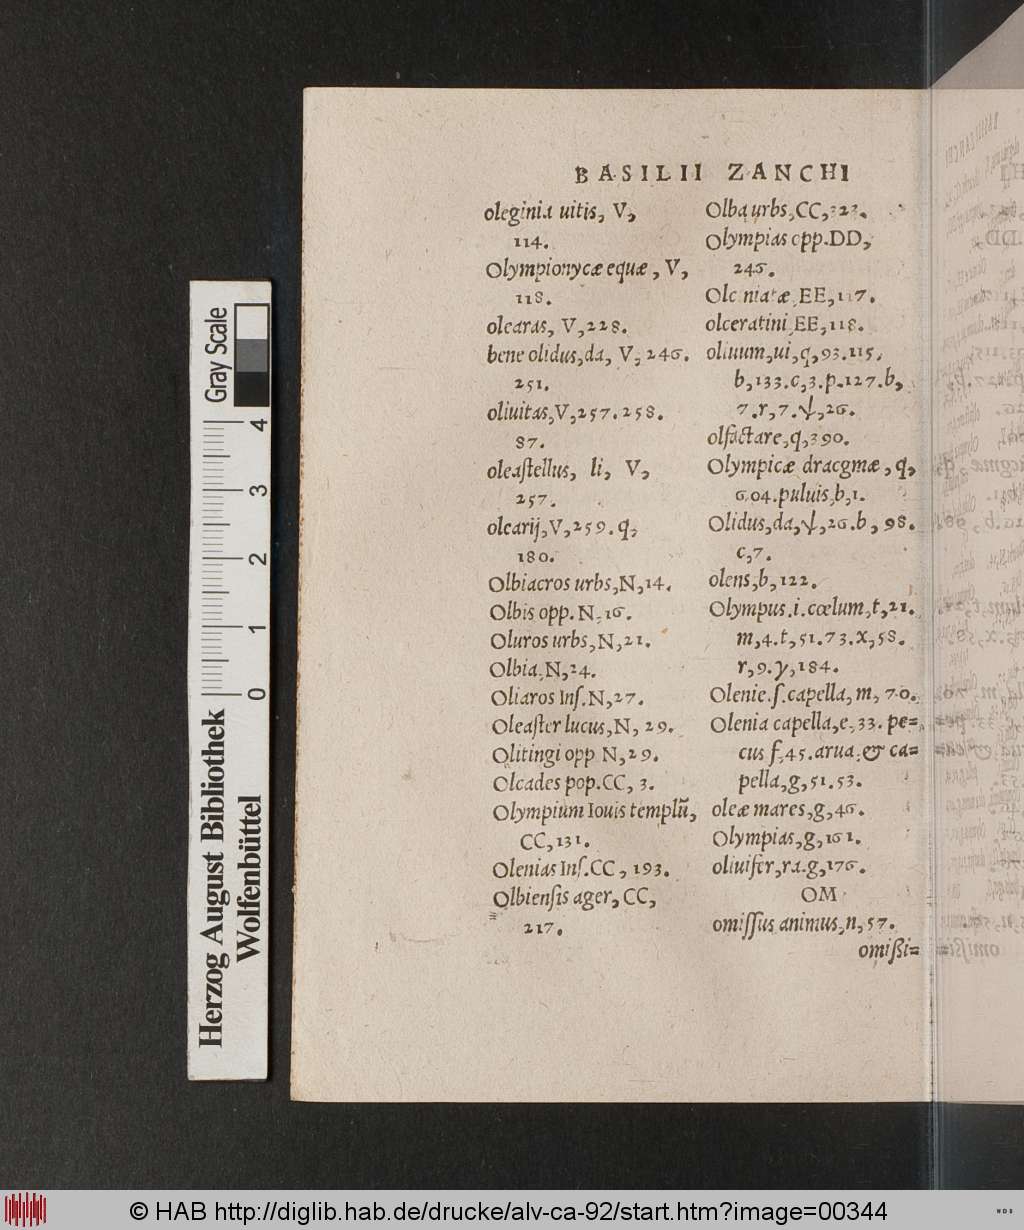 BASILII ZANCHI
oleginia uitis, V,
114.
Olympionycæ equæ, V,
118.
olearas, V,228.
bene olidus,da, V,246.
251.
oliuitas,V,257.258.
87.
oleaſtellus, li, V,
257.
olearij,V,259.q,
180.
Olbiacros urbs,N,14.
Olbis opp.N,16.
Oluros urbs,N,21.
Olbia,N,24.
Oliaros Inſ.N,27.
Oleaſter lucus,N, 29.
Olitingi opp N,29.
Olcades pop.CC, 3.
Olympium Iouis templũ,
CC,131.
Olenias Inſ.CC, 193.
Olbienſis ager, CC,
217.
Olba urbs,CC,322.
Olympias opp.DD,
246.
niatæ,EE,117.
olceratini,EE,118.
oliuum,ui,q,93.115.
b,133.c,3.p.127.b,
7.r,7.ψ,26.
olfactare,q,390.
Olympicæ dracgmæ, q,
604.puluis,b,1.
Olidus,da,ψ,26.b, 98.
c,7.
olens,b,122.
Olympus.i.cœlum,t,21.
m,4.t,51.73.x,58.
r,9.y,184.
Olenie.ſ.capella, m, 70.
Olenia capella,e,33. pe=
cus f,45.arua.& ca=
pella,g,51.53.
oleæ mares,g,46.
Olympias,g,161.
oliuifer,ra.g,176.
OM
omiſſus animus,n,57.
omißi=
Gray Scale
4
3
2
1
0
Herzog August Bibliothek
Wolfenbüttel
© HAB http://diglib.hab.de/drucke/alv-ca-92/start.htm?image=00344